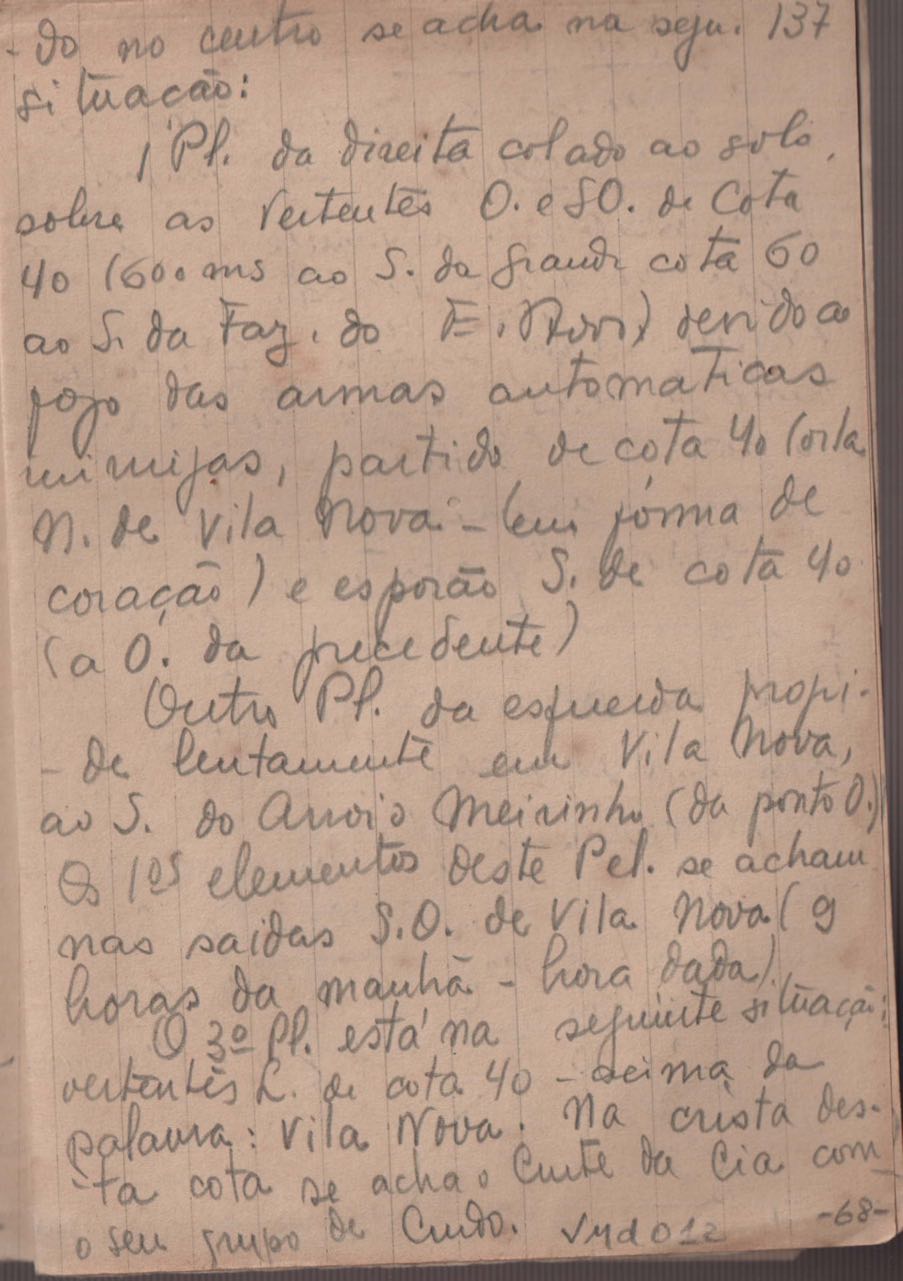 -do no centro se acha na segu. 137
situação:
1 Pl. da direita colado ao solo,
sobre as vertentes O. e SO. de Cota
40 (600 ms ao S. da grande cota 60
ao S. da Faz. do E. Novo) devido ao
fogo das armas automaticas
inimigas, partido de cota 40 (orla
N. de Vila Nova - (em fórma de
coração) e esporão S. de cota 40
(a O. da precedente)
Outro Pl. da esquerda progri-
-de lentamente em Vila Nova,
ao S. do Arroio Meirinho (da ponto O.)
Os 1os elementos deste Pel. se acham
nas saidas S.O. de Vila Nova (9
horas da manhã - hora dada).
O 3º Pl. está na seguinte situação:
vertentes L. de cota 40 - acima da
palavra: Vila Nova. Na crista des-
-ta cota se acha o Cmte da Cia com
o seu grupo de Cmdo. -68-